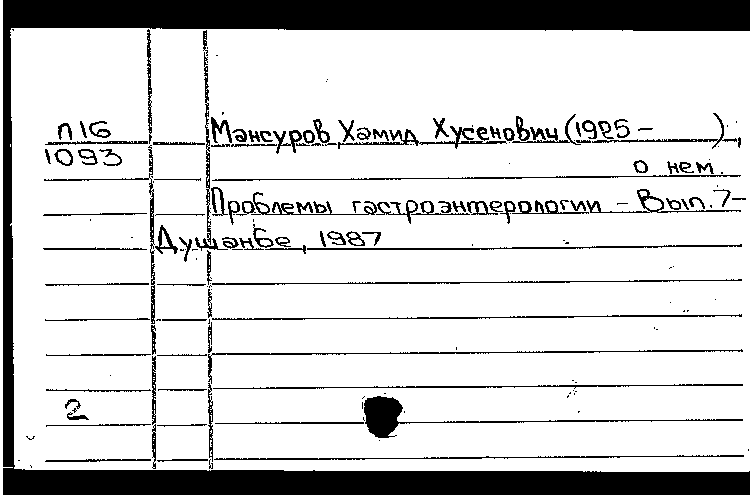 П16 Мансуров, Хамид Хусенович (1925 – ),
1093 о нем.
Проблемы гастроэнтерологии – Вып. 7 –
Душанбе, 1987
2